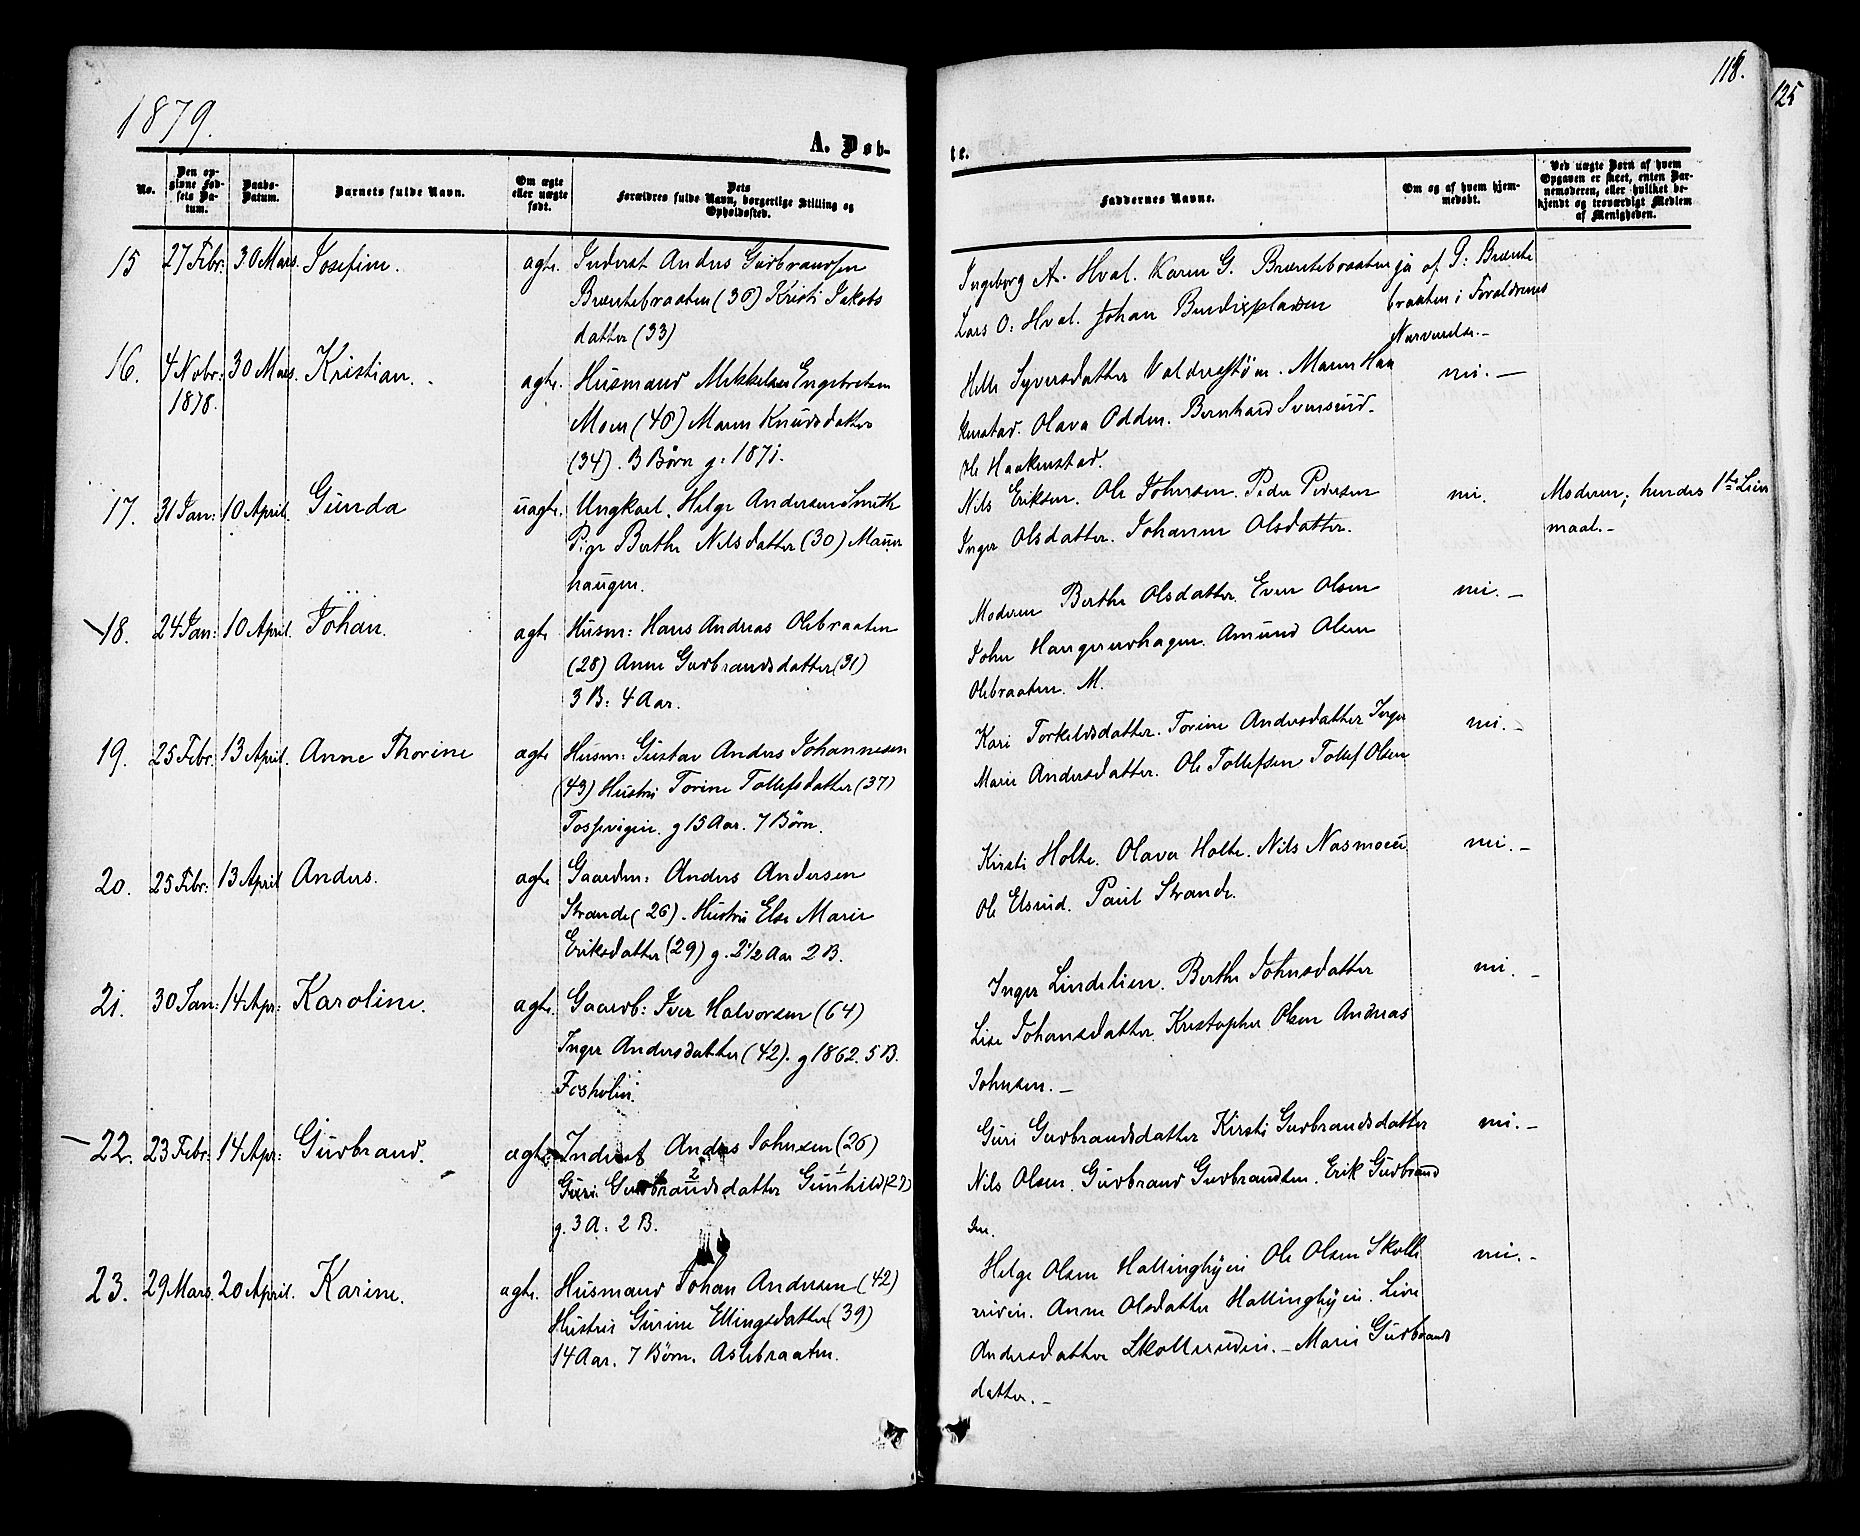 1879.
118.
125
A. Døb-
te.
No.
Den op-
givne Fød-
sels Da-
tum.
Daabs-
Datum.
Barnets fulde Navn.
Om ægte
eller uægte
født.
Dets
Forældres fulde Navn, borgerlige Stilling og
Opholdssted.
Faddernes Navne.
Om og af hvem hjem-
medøbt.
Ved uægte Børn af hvem
Opgaven er skeet, enten Bar-
nemoderen, eller hvilket be-
kjendt og troværdigt Medlem
af Menigheden.
15 27 Febr: 30 Mars. Josefine. ægte. Inderst Anders Gudbrandsen
Bræntebraaten (36) Kristi Jakobs
datter (33)
Ingeborg A. Hval. Karen G. Bræntebraaten
Lars O. Hval. Johan Bendixpladsen
ja af G: Brænte
braaten i Forældrenes
Nærværelse.-
16. 4 Nobr: 30 Mars. Kristian. ægte. Husmand Mikkelsen Engebretsen
1878.
Moen (40) Maren Knudsdatter
(34). 3 Børn g. 1871.
Helle Syversdatter Valdersstøen. Maren Haa
kenstad. Olava Odden. Bernhard Svensrud.
Ole Haakenstad.
nei.-
17. 31 Jan: 10 April. Gunda uægte. Ungkarl. Helge Andersen Smuth
Pige Berthe Nilsdatter (30) Maur
haugen.
Nils Eriksen. Ole Johnsen. Peder Pedersen
Inger Olsdatter. Johanne Olsdatter.
nei.
Moderen; hendes 1ste Leier
maal.-
18. 24 Jan: 10 April. Johan. ægte Husm: Hans Andreas Olebraaten
(28) Anne Gudbrandsdatter (31)
3 B: 4 Aar.
Moderen Berthe Olsdatter. Even Olsen
John Haugerudhagen. Amund Olsen
Olebraaten. M.
nei.-
19. 25 Febr. 13 April. Anne Thorine ægte Husm: Gustav Anders Johannesen
(43) Hustru Torine Tollefsdatter (37)
Fossevigen. g 15 Aar. 7 Børn.
Kari Torkeldsdatter. Torine Andersdatter Inger
Marie Andersdatter. Ole Tollefsen Tollef Olsen
nei.-
20. 25 Febr: 13 April Anders. ægte Gaardm: Anders Andersen
Strande (26). Hustru Else Marie
Eriksdatter (29) g. 2 1/2 Aar 2 B.
Kirsti Holte. Olava Holte. Nils Næsmoen
Ole Elsrud. Paul Strande.
nei.-
21. 30 Jan: 14 Apr: Karoline. ægte. Gaardb: Iver Halvorsen (64)
Inger Andersdatter (42). g 1862. 5 B.
Fosholm.
Inger Lindelien. Berthe Johnsdatter
Lise Johansdatter Kristopher Olsen Andreas
Johnsen.-
nei.-
22. 23 Febr: 14 Apr: Gudbrand. ægte Inderst Anders Johnsen (26)
Guri Gudbrandsdatter Gunhild (27)
g. 3 A: 2 B.
Guri Gudbrandsdatter Kirsti Gudbrandsdatter
Nils Olsen. Gudbrand Gudbrandsen. Erik Gudbrand
sen.
nei.-
23. 29 Mars. 20 April. Karine. ægte. Husmand Johan Andersen (42)
Hustru Gurine Ellingsdatter (39)
14 Aar. 7 Børn. Aslebraaten.
Helge Olsen Hallingbyeie Ole Olsen Skolle
rudeie. Anne Olsdatter Hallingbyeie. Live
Andersdatter Skollerudeie.- Marie Gudbrands
datter.-
nei.-